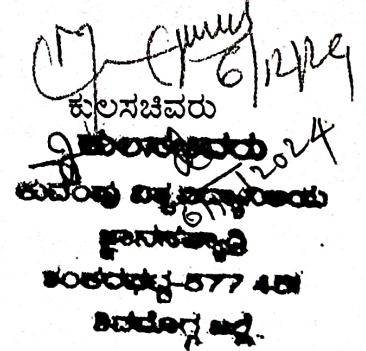 6/12/24
ಕುಲಸಚಿವರು
ಕುಲಸಚಿವರು
6/12/2024
ಕುವೆಂಪು ವಿಶ್ವವಿದ್ಯಾನಿಲಯ
ಜ್ಞಾನಸಹ್ಯಾದ್ರಿ
ಶಂಕರಘಟ್ಟ-577 451
ಶಿವಮೊಗ್ಗ ಜಿಲ್ಲೆ.